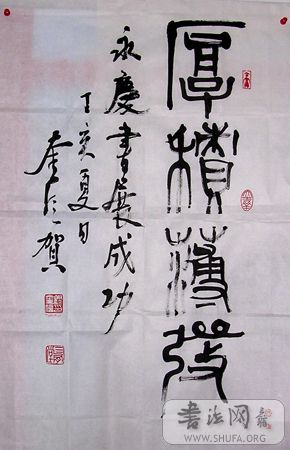 厚積薄發
永慶書展成功
丁亥夏日
賀
書法网
WWW.SHUFA.ORG